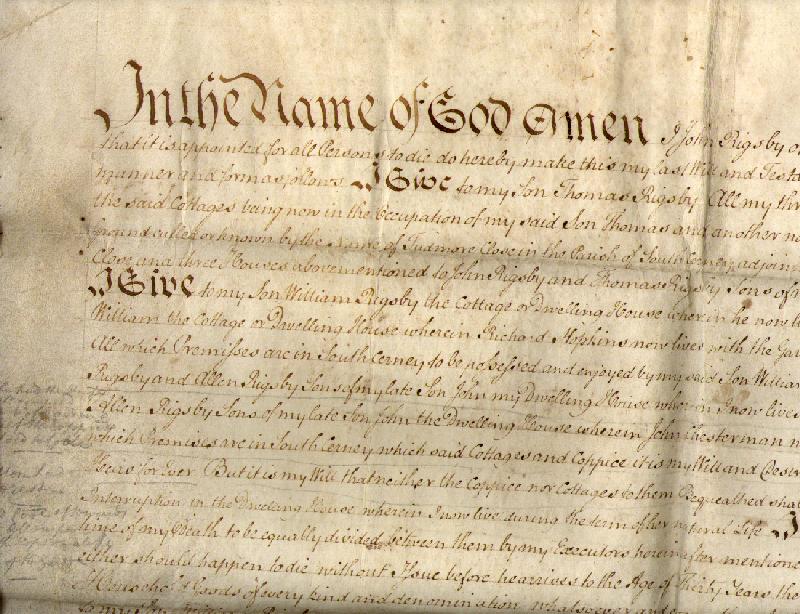 In the Name of God Amen I John Rigsby of
that it is appointed for all Persons to die do hereby make this my last Will and Testa
manner and form as follows I Give to my Son Thomas Rigsby All my thr
the said Cottages being now in the Occupation of my said Son Thomas and another no
ground called or known by the Name of Tudmore Close in the Parish of South Cerney adjoin
Close and three Houses abovementioned to John Rigsby and Thomas Rigsby Sons of m
I Give to my Son William Rigsby the Cottage or Dwelling House wherein he now
William the Cottage or Dwelling House wherein Richard Hopkins now lives with the Gar
All which Premisses are in South Cerney to be possessed and enjoyed by my said Son William
Rigsby and Allen Rigsby Sons of my late Son John my Dwelling House wherein I now live
Allen Rigsby Sons of my late Son John the Dwelling House wherein John Chesterman n
which Premises are in South Cerney which said Cottages and Coppice it is my Will and Desire
Heirs for Ever But it is my Will that neither the Coppice nor Cottages to them Bequeathed shal
Interruption in the Dweling House wherein I now live during the term of her natural Life I
time of my Death to be equally divided between them by my Executors herein after mentione
either should happen to die without Issue before he arrives to the Age of Thirty Years the
Household Goods of every kind and denomination whatsoever and
to my